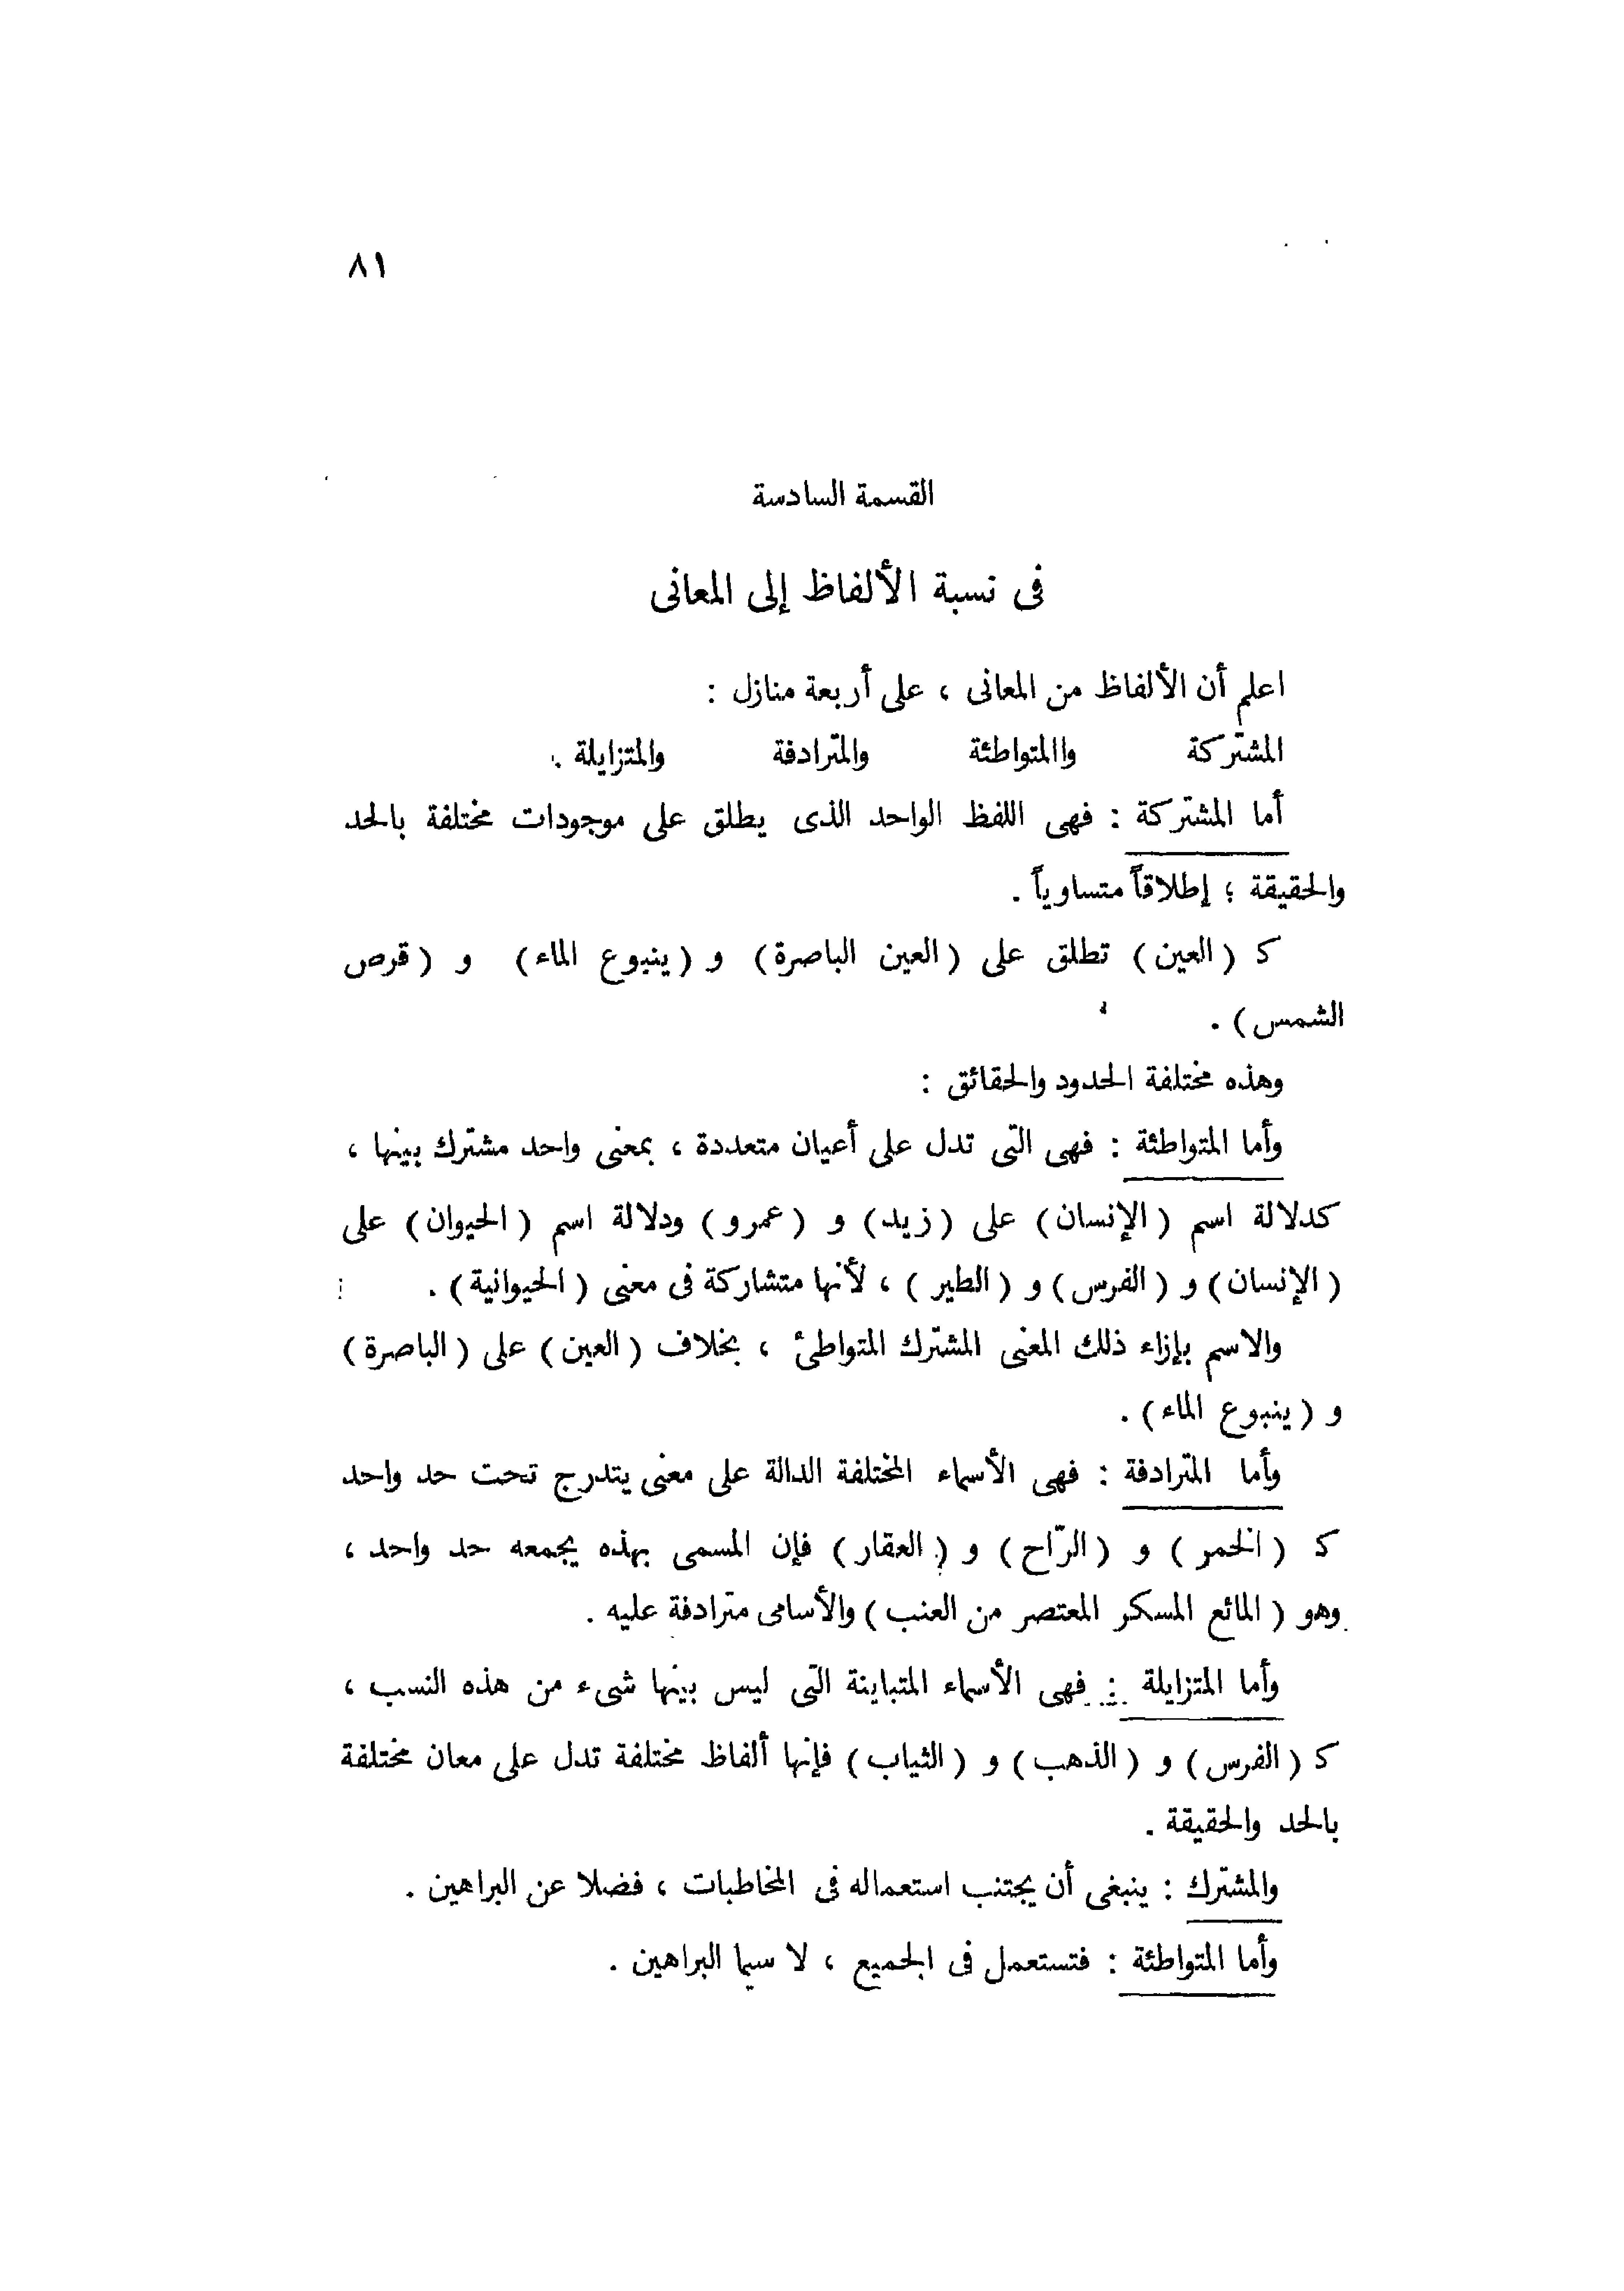 ٨١
القسمة السادسة
فى نسبة الألفاظ إلى المعانى
اعلم أن الألفاظ من المعانى ، على أربعة منازل :
المشتركة واالمتواطئة والمترادفة والمتزايلة .
أما المشتركة : فهى اللفظ الواحد الذى يطلق على موجودات مختلفة بالحد
والحقيقة ؛ إطلاقاً متساوياً .
كـ ( العين ) تطلق على ( العين الباصرة ) و ( ينبوع الماء ) و ( قرص
الشمس ) .
وهذه مختلفة الحدود والحقائق :
وأما المتواطئة : فهى التى تدل على أعيان متعددة ، بمعنى واحد مشترك بينها ،
كدلالة اسم ( الإنسان ) على ( زيد ) و ( عمرو ) ودلالة اسم ( الحيوان ) على
( الإنسان ) و ( الفرس ) و ( الطير ) ، لأنها متشاركة فى معنى ( الحيوانية ) .
والاسم بإزاء ذلك المعنى المشترك المتواطئ ، بخلاف ( العين ) على ( الباصرة )
و ( ينبوع الماء ) .
وأما المترادفة : فهى الأسماء المختلفة الدالة على معنى يتدرج تحت حد واحد
كـ ( الخمر ) و ( الرّاح ) و ( العقار ) فإن المسمى بهذه يجمعه حد واحد ،
وهو ( المائع المسكر المعتصر من العنب ) والأسامى مترادفة عليه .
وأما المتزايلة : فهى الأسماء المتباينة التى ليس بينها شىء من هذه النسب ،
كـ ( الفرس ) و ( الذهب ) و ( الثياب ) فإنها ألفاظ مختلفة تدل على معان مختلفة
بالحد والحقيقة .
والمشترك : ينبغى أن يجتنب استعماله فى المخاطبات ، فضلا عن البراهين .
وأما المتواطئة : فتستعمل فى الجميع ، لا سيما البراهين .